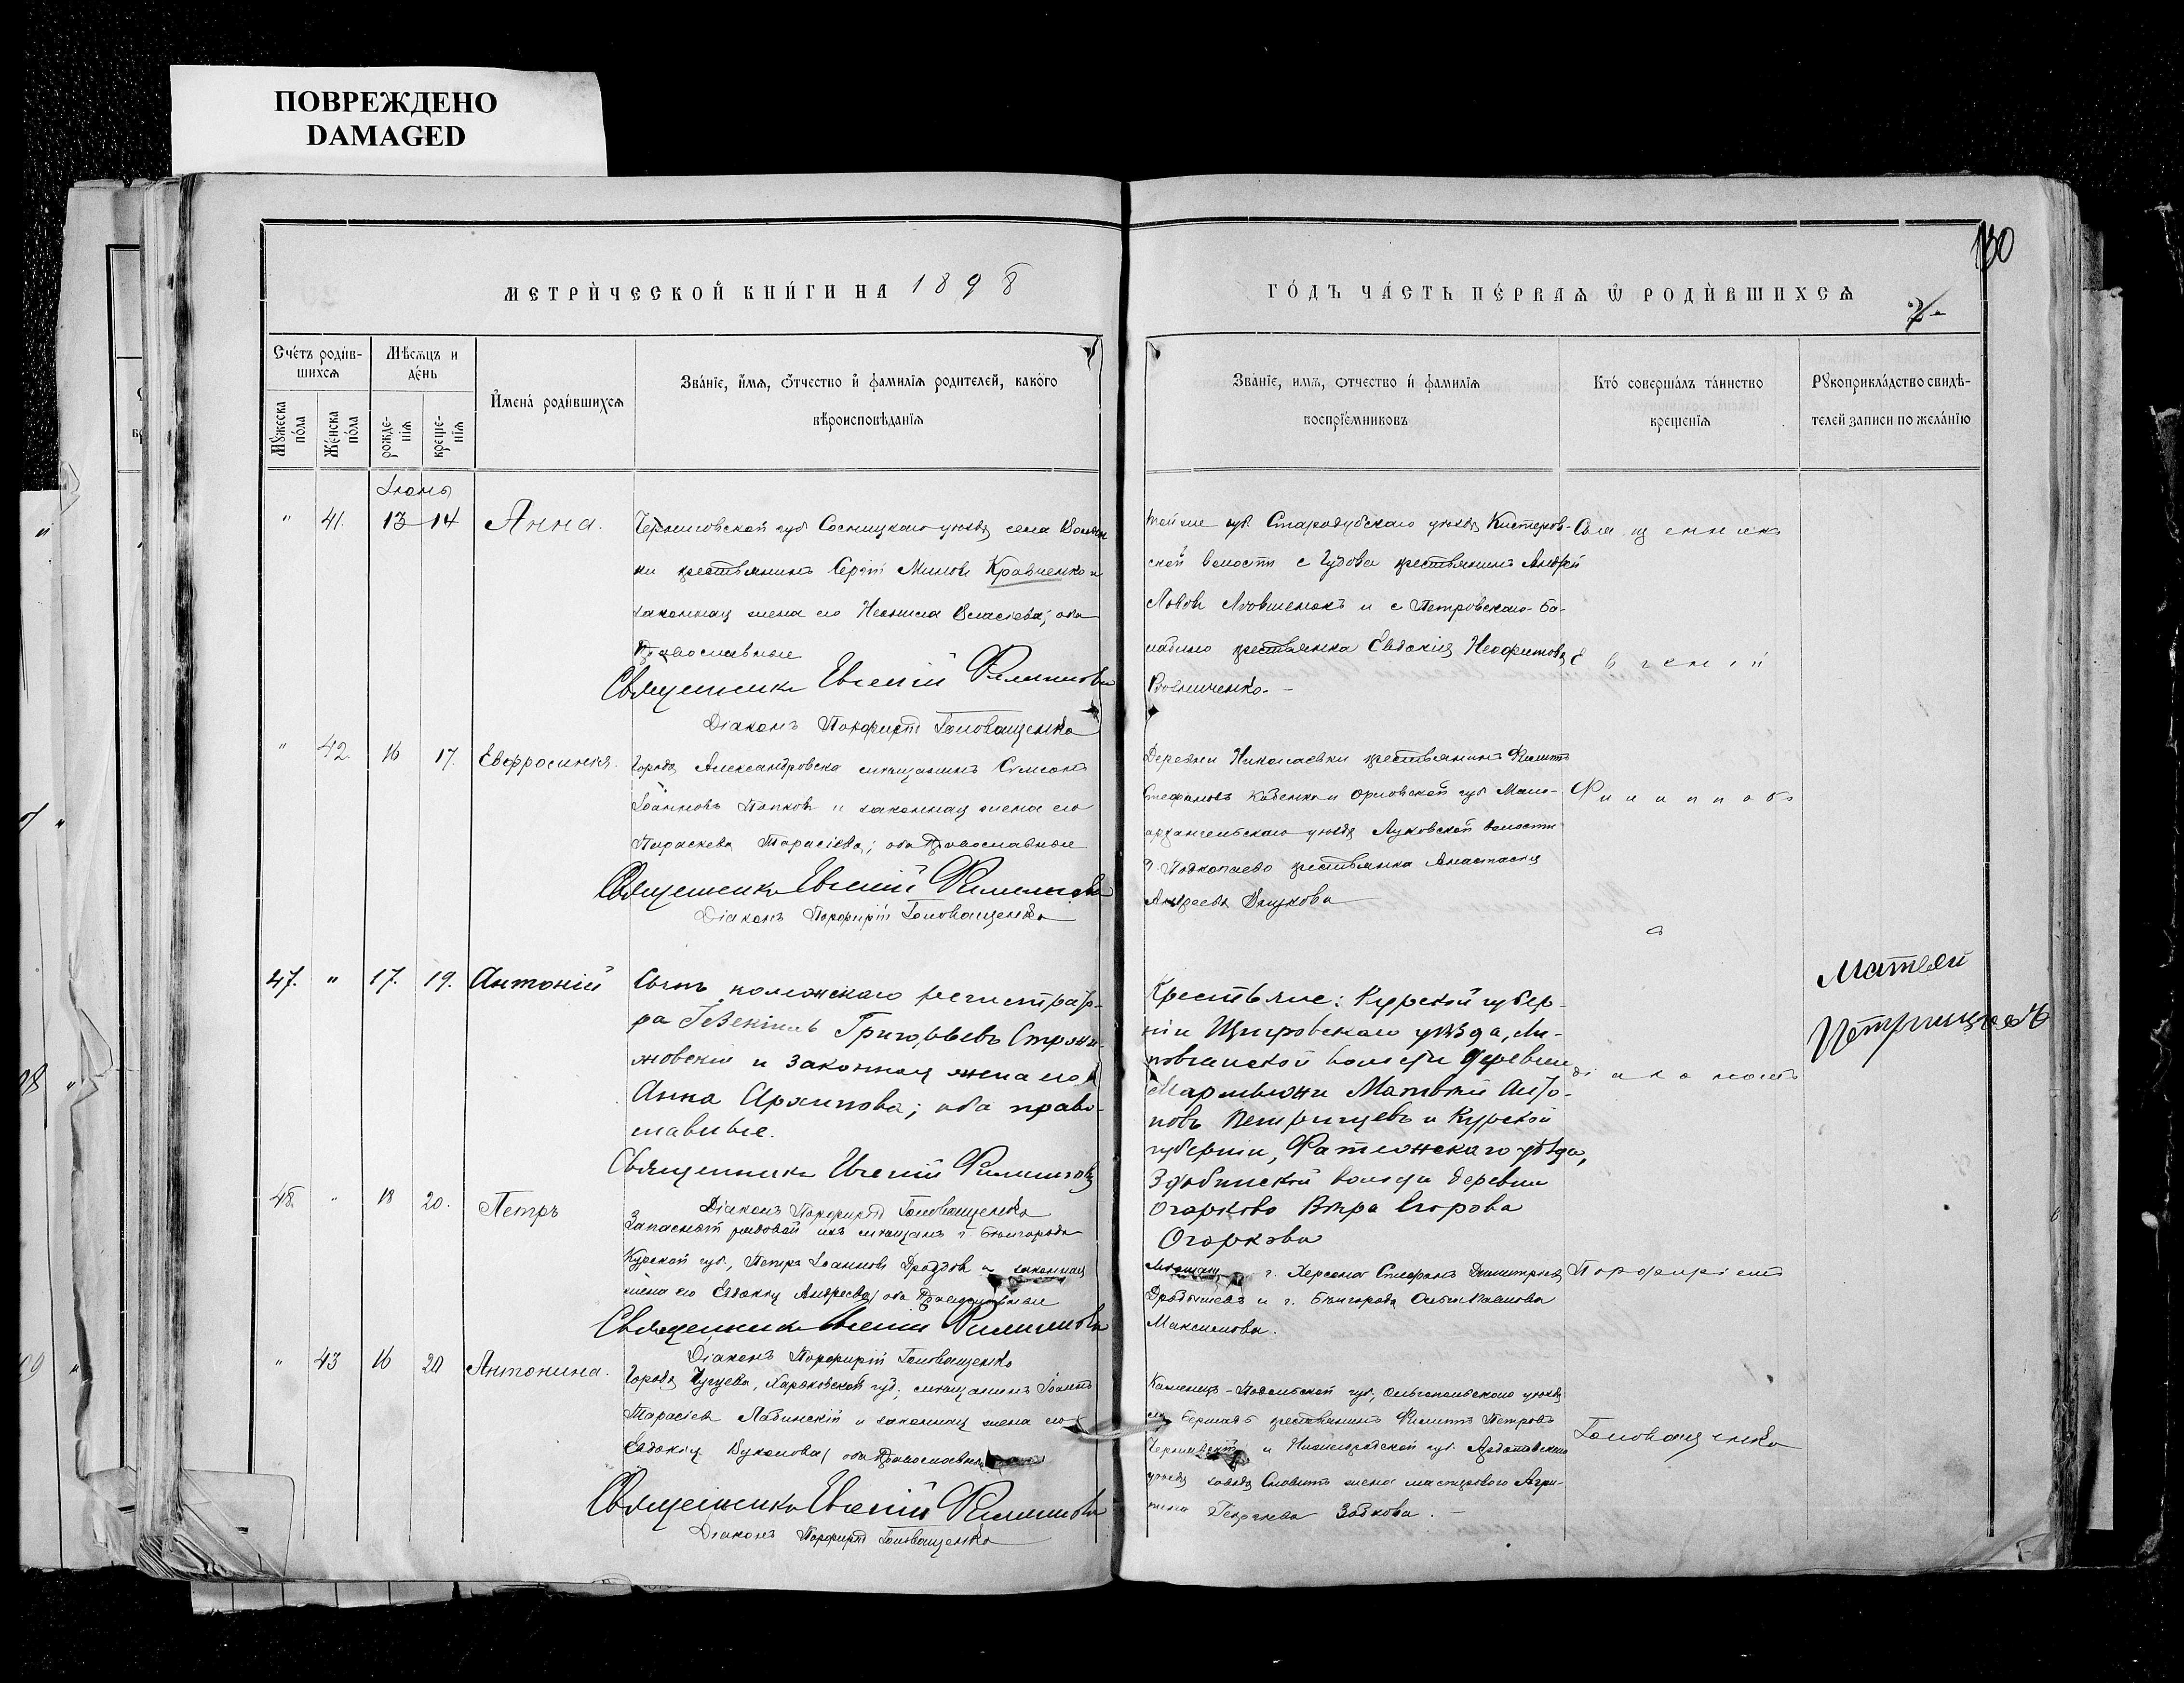 ПОВРЕЖДЕНО
DAMAGED
130
МЕТРИЧЕСКОЙ КНИГИ НА 1898
ГОДЪ ЧАСТЬ ПЕРВАЯ Ѿ РОДИВШИХСЯ
Счетъ родив-
шихся
Мѣсяцъ и
день
Мужеска
пола
Женска
пола
рожде-
нія
креще-
нія
Имена родившихся
Званіе, имя, отчество и фамилія родителей, какого
вѣроисповѣданія
Званіе, имя, отчество и фамилія
воспріемниковъ
Кто совершалъ таинство
крещенія
Рукоприкладство свидѣ-
телей записи по желанію
Іюнь
" 41. 13 14 Анна.
Черниговской губ. Сосницкаго уѣзда села Волын
ки крестьянинъ Сергій Миновъ Кравченко и
законная жена его Неонила Власіева; оба
Православные
Священникъ Евгеній Филипповъ
Діаконъ Порфирій Головащенко
той же губ. Стародубскаго уѣзда Кистеров-
ской волости с Гудова крестьянинъ Андрей
и с Петровскаго
крестьянка Евдокія Неофитова
Священникъ
Евгеній
" 42. 16 17. Евфросинія.
Города Александровска мѣщанинъ Симеонъ
Іоанновъ Попковъ и законная жена его
Параскева Тарасіева; оба Православные
Священникъ Евгеній Филипповъ
Діаконъ Порфирій Головащенко
Деревни Николаевки крестьянинъ Филиппъ
Стефановъ и Орловской губ. Мало-
архангельскаго уѣзда Луковской волости
д. Подкопаево крестьянка Анастасія
Андреева
Филипповъ
с
47. " 17. 19. Антоній
Сынъ коллежскаго регистрато-
ра Іезекіиль Григорьевъ
и законная жена его
Анна Архипова; оба право-
славные.
Священникъ Евгеній Филипповъ
Діаконъ Порфирій Головащенко
Крестьяне: Курской губер-
ніи Щигровскаго уѣзда, Ли-
волости деревни
Матвѣй Анто-
новъ Петрищевъ и Курской
губерніи, Фатежскаго уѣзда,
волости деревни
Огарково Вѣра Егорова
Огаркова
діакономъ
Матвей
Петрищевъ
48. " 18 20. Петръ
Запасный рядовой изъ мѣщанъ г. Бѣлгорода
Курской губ., Петръ Іоанновъ Дроздовъ и законная
жена его Евдокія Андреева; оба Православные
Священникъ Евгеній Филипповъ
Діаконъ Порфирій Головащенко
г. Херсона Стефанъ Димитріевъ
и г. Бѣлгорода
Максимова.
Порфиріемъ
" 43 16 20 Антонина.
Города Чугуева, Харьковской губ., мѣщанинъ Іоаннъ
Тарасіевъ Лабинскій и законная жена его
Евдокія Вуколова; оба Православные
Священникъ Евгеній Филипповъ
Діаконъ Порфирій Головащенко
Каменецъ-Подольской губ., Ольгопольскаго уѣзда
Бершадь крестьянинъ Филиппъ Петровъ
и Нижегородской губ. Ардатовскаго
уѣзда завода жена мастероваго Агри-
пина Георгіева Зобкова.
Головащенко